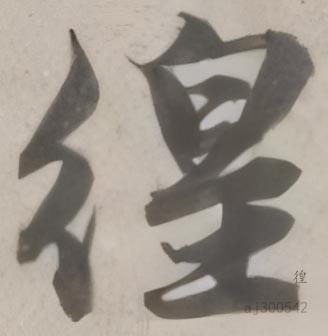 徨
徨
aj300542